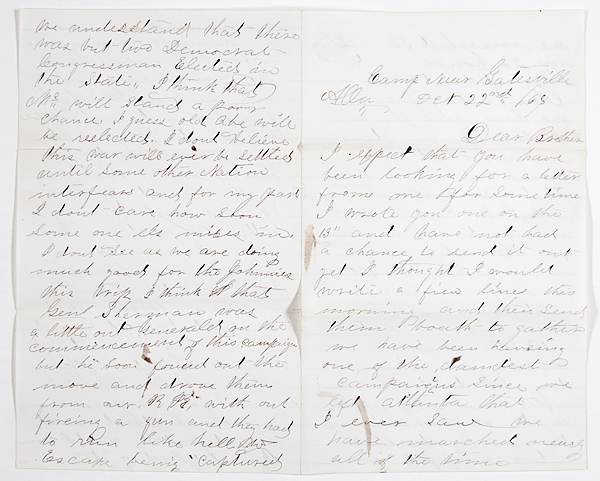 Camp Near Gatesville
Ala, Oct 22nd /63
Dear Brother
I expect that you have
been looking for a letter
from me for some time
I wrote you one on the
13" and have not had
a chance to send it out
yet I thought I would
write a few lines this
morning and then send
them boath to gather
we have been haveing
one of the damdest
campaigns since we
left atlanta that
I ever saw we
have marched nearly
all of the time
we undestand that there
was but two Democrat
Congressman Elected in
the State, I think that
Mc will stand a poor
chance. I guess old Abe will
be reelected. I dont believe
this war will ever be settled
until some other Nation
interfears and for my part
I dont care how soon
some one els mixes in
I dont see as we are doing
much good for the Johnnies
this trip I think that
Genl Sherman was
a little out Generald on the
commencement of this campaign
but he soon found out the
move and drove them
from our R R, with out
fireing a gun and they had
to run like hell to
Escape being captured